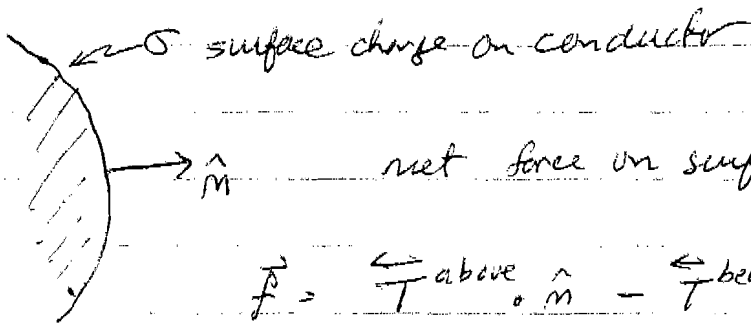 σ surface charge on conductor
n̂ net force on surf
f⃗ = T⃡ above · n̂ - T⃡